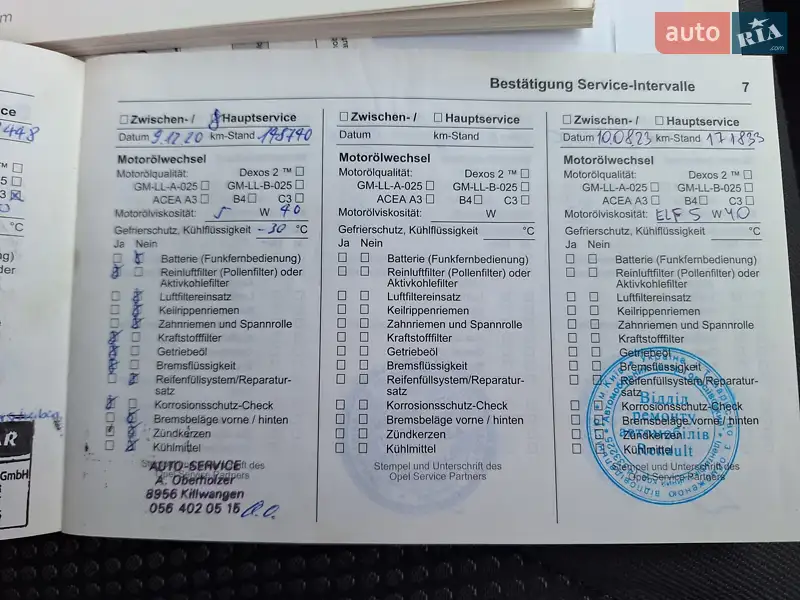 auto RIA .com
Bestätigung Service-Intervalle 7
Zwischen- / Hauptservice
Datum 9.12.20 km-Stand 198740
Motorölwechsel
Motorölqualität: Dexos 2 ™
GM-LL-A-025 GM-LL-B-025
ACEA A3 B4 C3
Motorölviskosität: 5 W 40
Gefrierschutz, Kühlflüssigkeit -30 °C
Ja Nein
Batterie (Funkfernbedienung)
Reinluftfilter (Pollenfilter) oder
Aktivkohlefilter
Luftfiltereinsatz
Keilrippenriemen
Zahnriemen und Spannrolle
Kraftstofffilter
Getriebeöl
Bremsflüssigkeit
Reifenfüllsystem/Reparatur-
satz
Korrosionsschutz-Check
Bremsbeläge vorne / hinten
Zündkerzen
Kühlmittel
AUTO-SERVICE
A. Oberholzer
8956 Killwangen
056 402 05 15
Zwischen- / Hauptservice
Datum km-Stand
Motorölwechsel
Motorölqualität: Dexos 2 ™
GM-LL-A-025 GM-LL-B-025
ACEA A3 B4 C3
Motorölviskosität: W
Gefrierschutz, Kühlflüssigkeit °C
Ja Nein
Batterie (Funkfernbedienung)
Reinluftfilter (Pollenfilter) oder
Aktivkohlefilter
Luftfiltereinsatz
Keilrippenriemen
Zahnriemen und Spannrolle
Kraftstofffilter
Getriebeöl
Bremsflüssigkeit
Reifenfüllsystem/Reparatur-
satz
Korrosionsschutz-Check
Bremsbeläge vorne / hinten
Zündkerzen
Kühlmittel
Stempel und Unterschrift des
Opel Service Partners
Zwischen- / Hauptservice
Datum 10.08.23 km-Stand 171833
Motorölwechsel
Motorölqualität: Dexos 2 ™
GM-LL-A-025 GM-LL-B-025
ACEA A3 B4 C3
Motorölviskosität: ELF 5 W 40
Gefrierschutz, Kühlflüssigkeit °C
Ja Nein
Batterie (Funkfernbedienung)
Reinluftfilter (Pollenfilter) oder
Aktivkohlefilter
Luftfiltereinsatz
Keilrippenriemen
Zahnriemen und Spannrolle
Kraftstofffilter
Getriebeöl
Bremsflüssigkeit
Reifenfüllsystem/Reparatur-
satz
Korrosionsschutz-Check
Bremsbeläge vorne / hinten
Zündkerzen
Kühlmittel
Stempel und Unterschrift des
Opel Service Partners
Відділ
ремонту
автомобілів
Renault